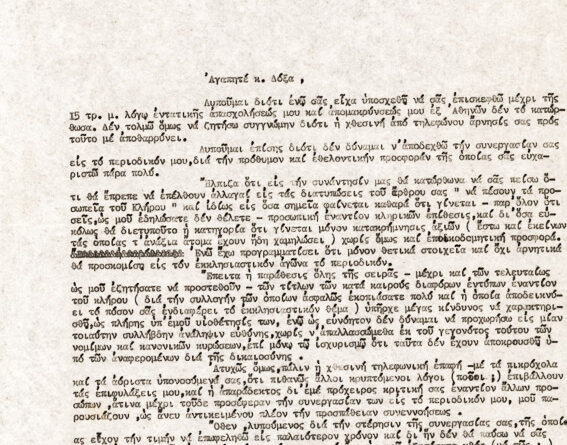 Ἀγαπητέ κ. Δόξα ,
Λυποῦμαι διότι ἐνῶ σᾶς εἶχα ὑποσχεθῆ νά σᾶς ἐπισκεφθῶ μέχρι τῆς
15 τρ. μ. λόγῳ ἐντατικῆς ἀπασχολήσεώς μου καί ἀπομακρύνσεώς μου ἐξ Ἀθηνῶν δέν τό κατώρ-
θωσα. Δέν τολμῶ ὅμως νά ζητήσω συγγνώμην διότι ἡ χθεσινή ἀπό τηλεφώνου ἄρνησίς σας πρός
τοῦτο μέ ἀποθαρρύνει.
Λυποῦμαι ἐπίσης διότι δέν δύναμαι ν'ἀποδεχθῶ τήν συνεργασίαν σας
εἰς τό περιοδικόν μου,διά τήν πρόθυμον καί ἐθελοντικήν προσφοράν τῆς ὁποίας σᾶς εὐχα-
ριστῶ πάρα πολύ.
Ἤλπιζα ὅτι εἰς τήν συνάντησίν μας θά κατώρθωνα νά σᾶς πείσω ὅ-
τι θά ἔπρεπε νά ἐπέλθουν ἀλλαγαί εἰς τάς διατυπώσεις τοῦ ἄρθρου σας " νά πέσουν τά προ-
σωπεῖα τοῦ Κλήρου " καί ἰδίως εἰς ὅσα σημεῖα φαίνεται καθαρά ὅτι γίνεται - παρ'ὅλον ὅτι
σεῖς,ὡς μοῦ ἐδηλώσατε δέν θέλετε - προσωπική ἐναντίον κληρικῶν ἐπίθεσις,καί δι'ὅσα εὐ-
κόλως θά διετυποῦτο ἡ κατηγορία ὅτι γίνεται μόνον κατακρήμνησις ἀξιῶν ( ἔστω καί ἐκείνων
τάς ὁποίας τ'ἀνάξια ἄτομα ἔχουν ἤδη χαμηλώσει ) χωρίς ὅμως καί ἐποικοδομητική προσφορά.
Ἐνῶ ἔχω προγραμματίσει ὅτι μόνον θετικά στοιχεῖα καί ὄχι ἀρνητικά
θά προσκομίσῃ εἰς τόν ἐκκλησιαστικόν ἀγῶνα τό περιοδικόν.
Ἔπειτα ἡ παράθεσις ὅλης τῆς σειρᾶς - μέχρι καί τῶν τελευταίως
ὡς μοῦ ἐζητήσατε νά προστεθοῦν - τῶν τίτλων τῶν κατά καιρούς διαφόρων ἐντύπων ἐναντίον
τοῦ κλήρου ( διά τήν συλλογήν τῶν ὁποίων ἀσφαλῶς ἐκοπιάσατε πολύ καί ἡ ὁποία ἀποδεικνύ-
ει τό πόσον σᾶς ἐνδιαφέρει τό ἐκκλησιαστικόν θέμα ) ὑπῆρχε μέγας κίνδυνος νά χαρακτηρι-
σθῆ,ὡς πλήρης ὑπ'ἐμοῦ υἱοθέτησίς των, ἐνῶ ὡς εὐνόητον δέν δύναμαι νά προχωρήσω εἰς μίαν
τοιαύτην συλλήβδην ἀνάληψιν εὐθύνης,χωρίς ν'ἀπαλλασσώμεθα ἐκ τοῦ γεγονότος τούτου τῶν
νομίμων καί κανονικῶν κυρώσεων,ἐπί μόνῳ τῷ ἰσχυρισμῷ ὅτι ταῦτα δέν ἔχουν ἀποκρουσθῆ ὑ-
πό τῶν ἀναφερομένων διά τῆς δικαιοσύνης .
Ἀτυχῶς ὅμως,πάλιν ἡ χθεσινή τηλεφωνική ἐπαφή -μέ τά πικρόχολα
καί τά ἀόριστα ὑπονοούμενά σας,ὅτι πιθανῶς ἄλλοι κρυπτόμενοι λόγοι (ποῖοι ;) ἐπιβάλλουν
τάς ἐπιφυλάξεις μου,καί ἡ ἀπαράδεκτος δι'ἐμέ πρόχειρος κριτική σας ἐναντίον ἄλλων προ-
σώπων ,ἅτινα μέχρι τοῦδε προσέφεραν τήν συνεργασίαν των εἰς τό περιοδικόν μου, μοῦ πα-
ρουσιάζουν ,ὡς ἄνευ ἀντικειμένου πλέον τήν προσπάθειαν συνεννοήσεως .
Ὅθεν ,λυπούμενος διά τήν στέρησιν τῆς συνεργασίας σας,τῆς ὁποί-
ας εἶχον τήν τιμήν νά ἐπωφεληθῶ εἰς παλαιότερον χρόνον καί ὅτι ἤν δέν θά παύσω νά σας